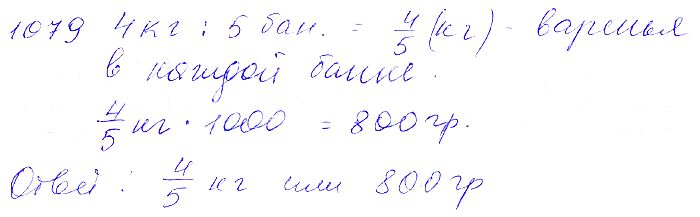 1079 4кг : 5 бан. = 4/5 (кг) - варенья
в каждой банке.
4/5 кг · 1000 = 800 гр.
Ответ : 4/5 кг или 800 гр